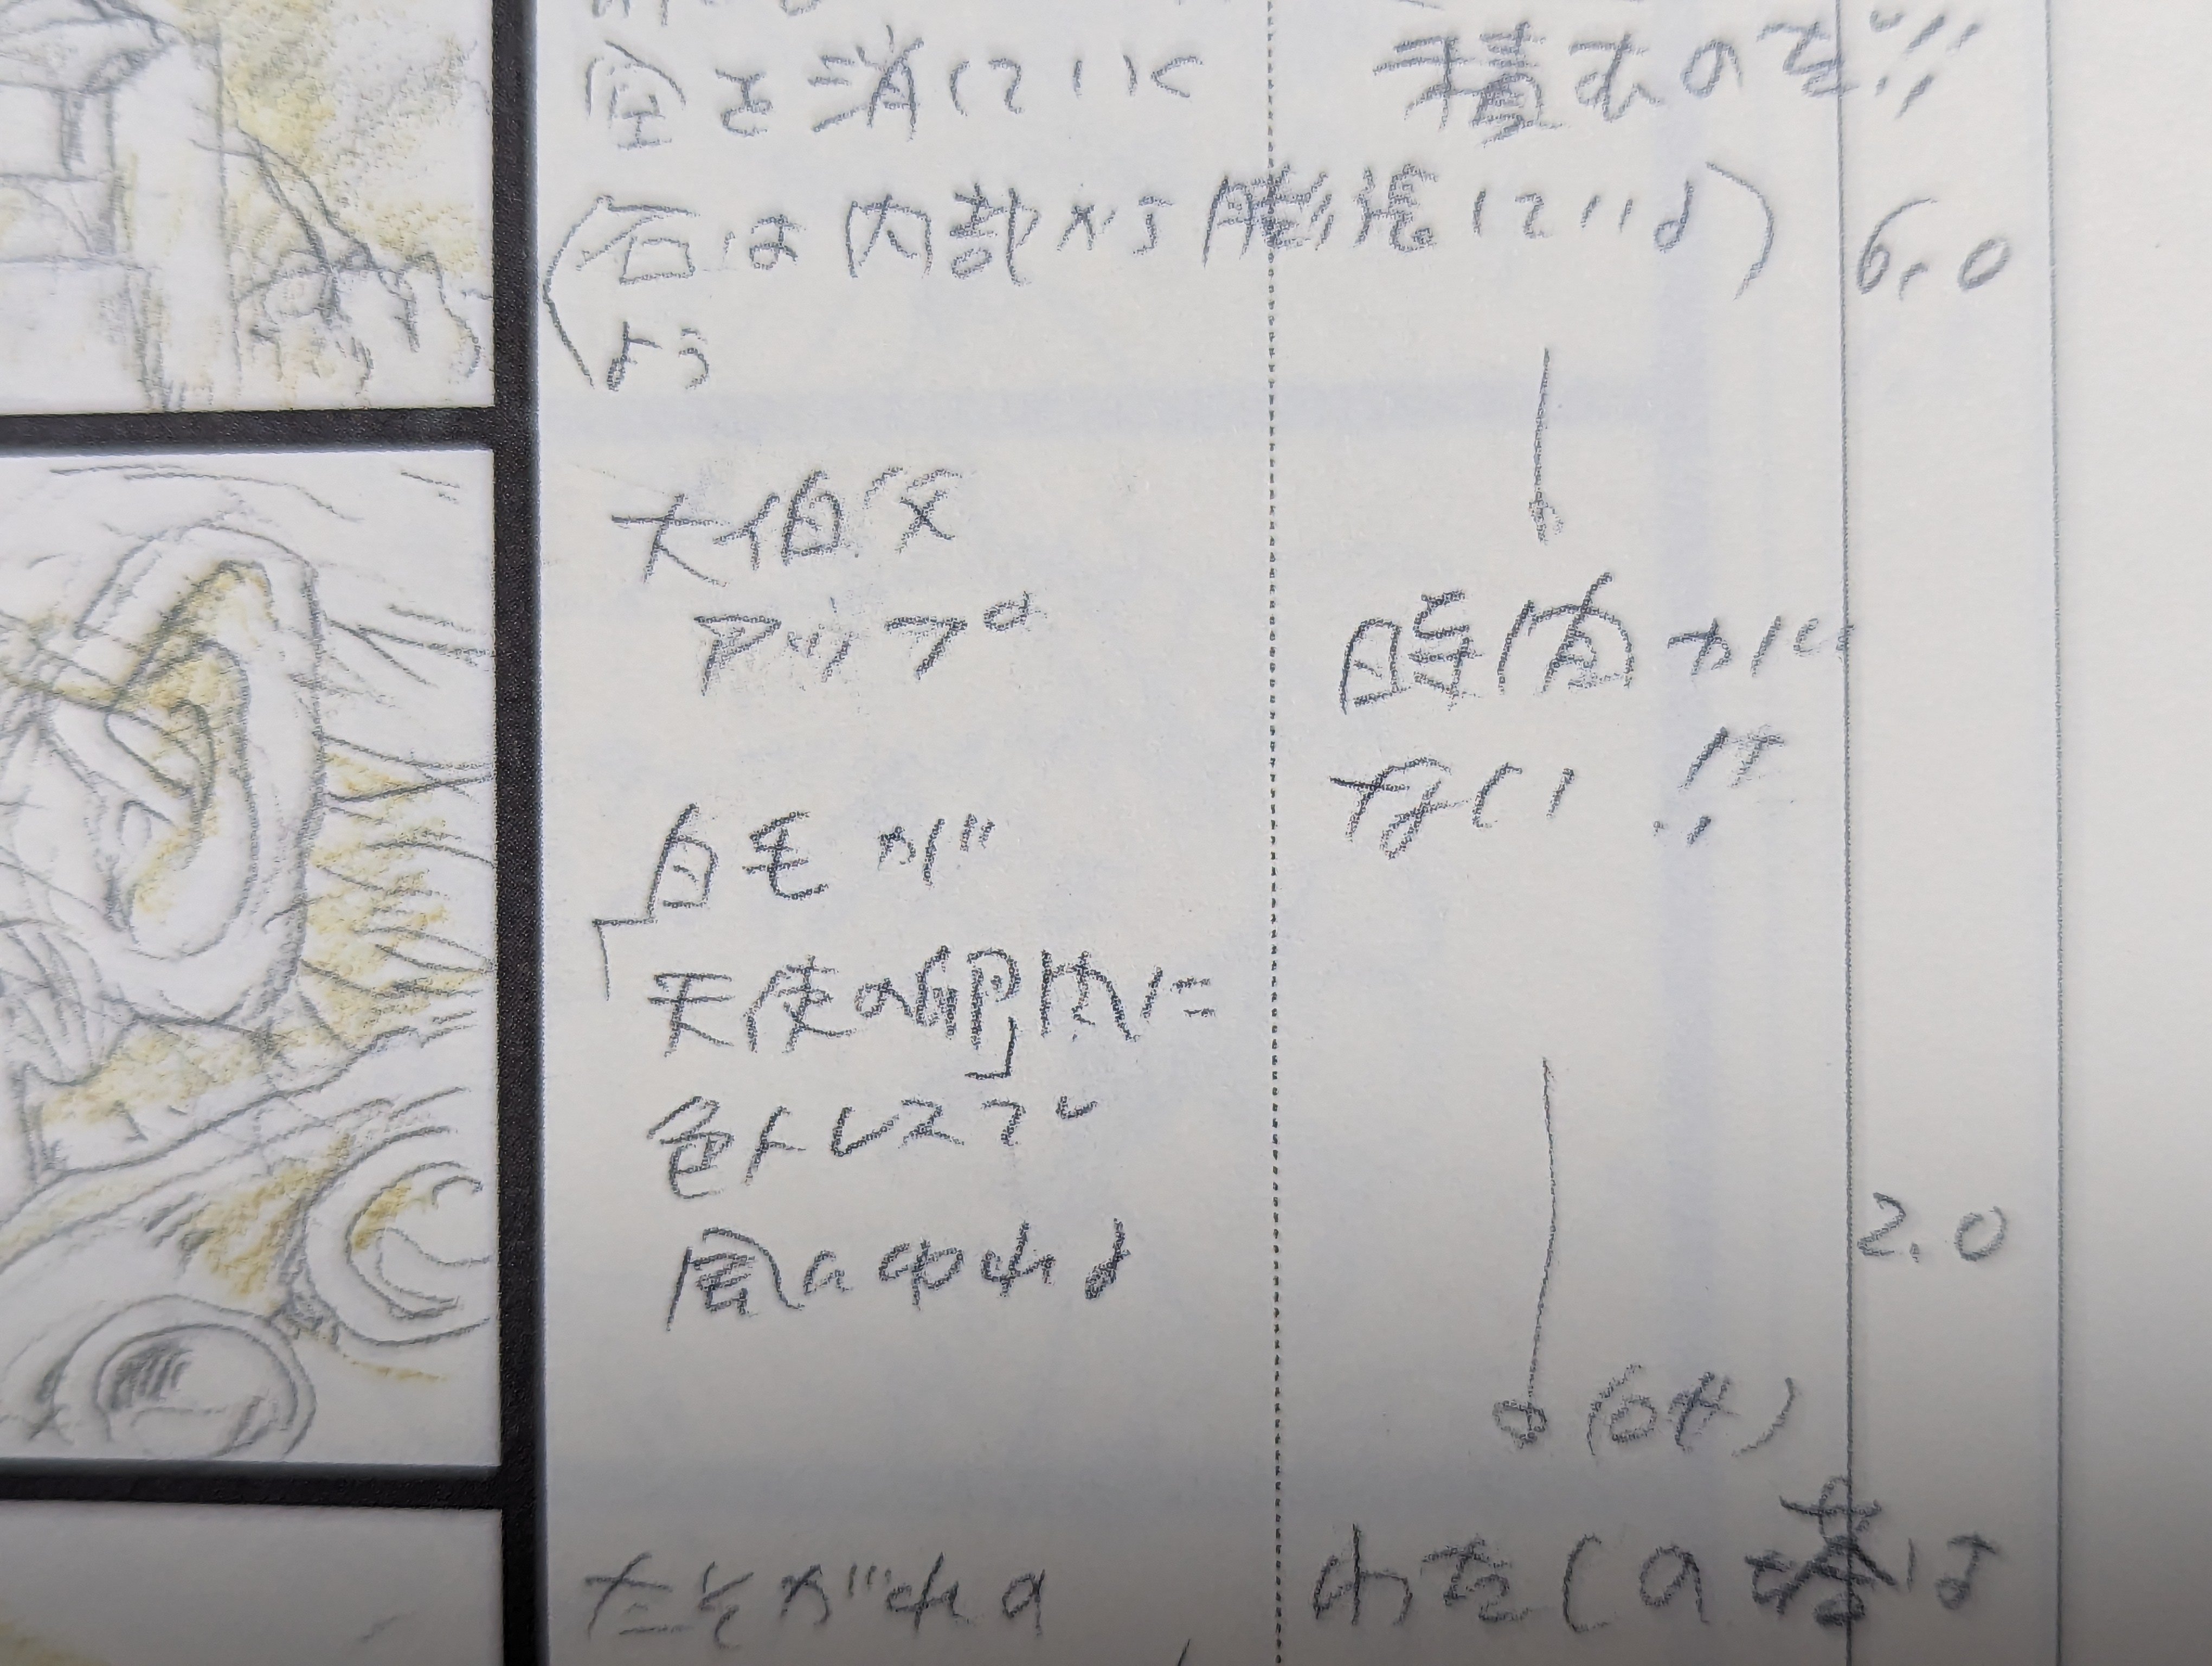 空を消していく
積むのだ!!
(石は内部から膨張している)
よう
6.0
大伯父
アップ
時間が
ない!!
白毛が
天使の卵風に
色トレスで
風にゆれる
2.0
(OFF)
たそがれの
わたしの塔は